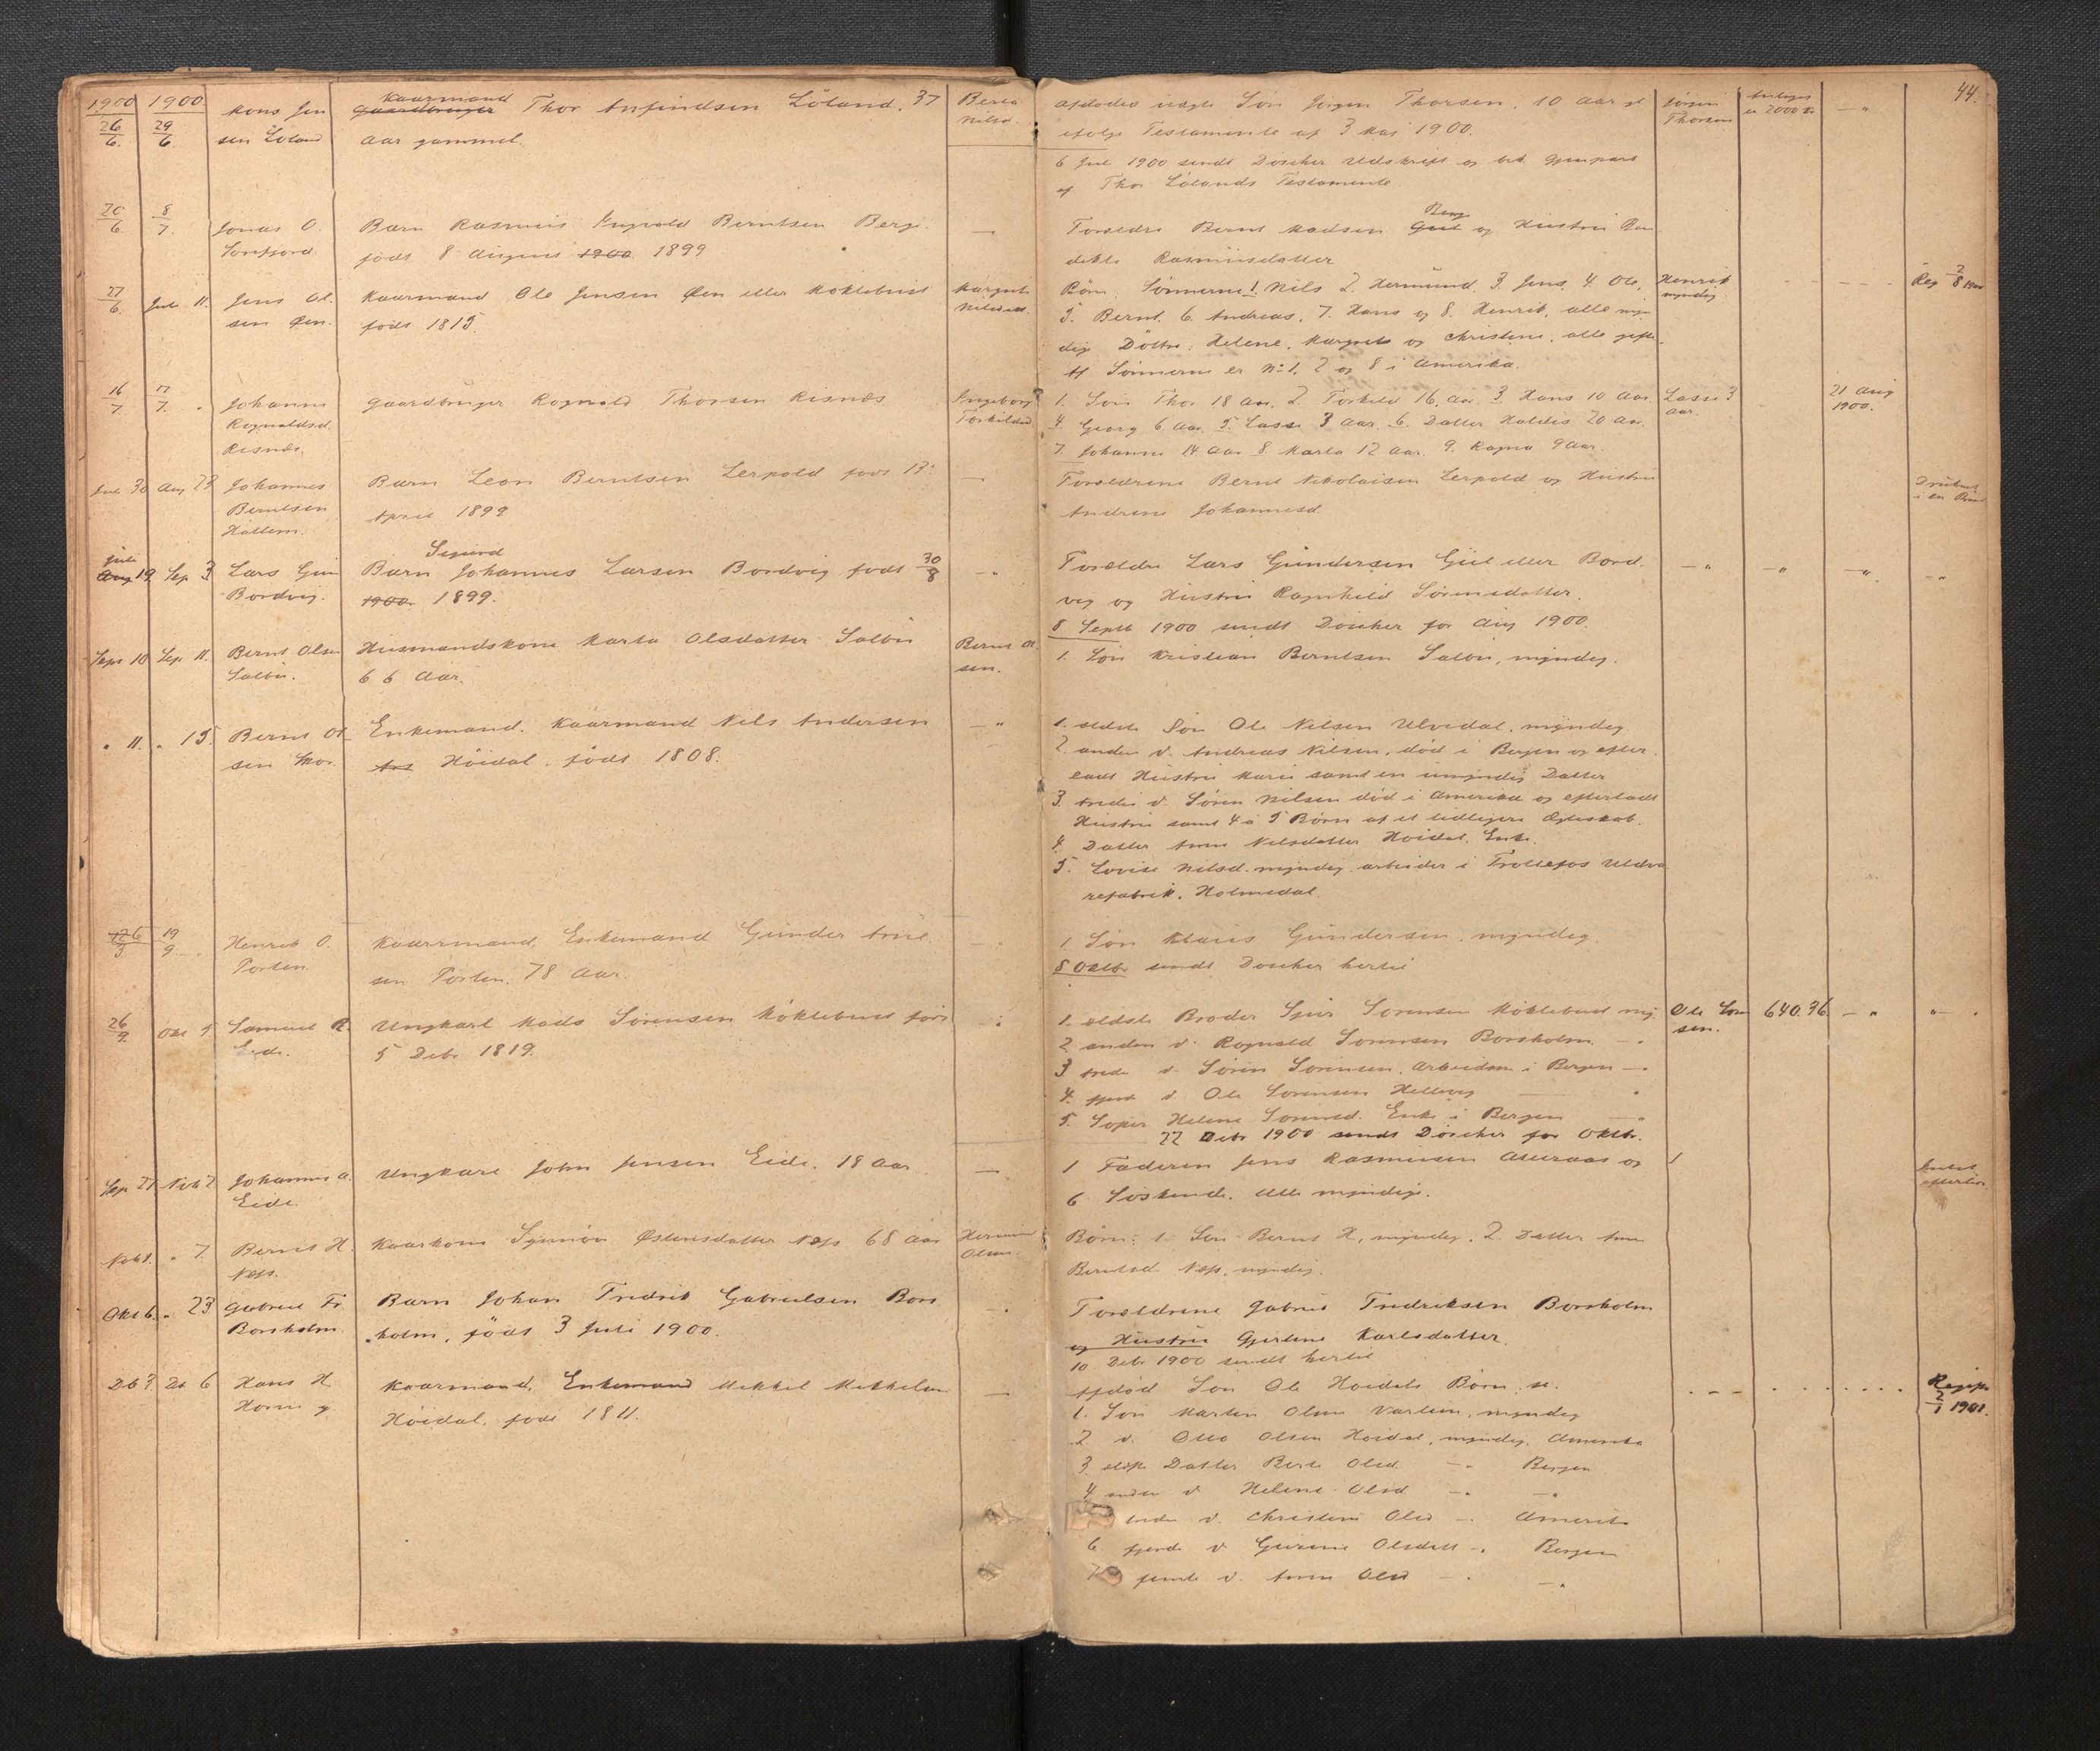 44.
1900 1900
26/6. 29/6
Mons Jen
sen Löland
Kaarmand
Gaardbruger Thor Anfindsen Löland. 37
Aar gammel.
Berta
Nilsd.
afdødes uægte Søn Jörgen Thorsen, 10 Aar gl
ifölge Testamente af 3 Mai 1900.
6 Juli 1900 sendt Döscher Udskrift og bek. Gjenpart
af Thor Lölands Testamente
Jörgen
Thorsen
er 2000 Kr
26/6. 8/7.
Jonas O.
Sörefjord.
Barn Rasmus Ingvald Berntsen Berge.
född 8 August 1900 1899
Forældre Bernt Madsen Gul og Hustru Ben
Berge
dikte Rasmusdatter
27/6. Juli 11.
Jens Ol.
sen Öen.
Kaarmand Ole Jensen Öen eller Moklebust
född 1815.
Margrete
Nilsdatt.
Börn. Sønnerne 1. Nils 2. Hermund. 3. Jens. 4. Ole,
5. Bernt. 6. Andreas. 7. Hans og 8. Henrik, alle myn
dige Döttre: Helene, Margrete og Christine, alle gifte.
Af Sönnerne er No 1, 2 og 8 i Amerika.
Henrik
myndig
Reg 2/8 1900
16/7. 17/7.
Johanne
Ragnvaldsd.
Risnæs.
Gaardbruger Ragnvald Thorsen Risnæs
Ingeborg
Torkildsd
1. Søn Thor 18 Aar. 2. Torkild 16 Aar. 3. Hans 10 Aar.
4. Georg 6 Aar. 5. Lasse 3 Aar. 6. Datter Haldis 20 Aar.
7. Johanne 14 Aar 8. Marta 12 Aar. 9. Ragna 9 Aar.
Lasse 3
Aar.
21 Aug
1900.
Juli 30 Aug 28
Johannes
Berntsen
Hallem.
Barn Leon Berntsen Lerpold född 13
April 1899
Forældrene Bernt Nikolaisen Lerpold og Hustru
Andrine Johannesd.
Druknet
i en Brønd
Juli
Aug 19 Sep 3
Lars Gun
Bordvig.
Sigurd
Barn Johannes Larsen Bordvig född 30/8
1900 1899.
Forældre Lars Gundersen Gul eller Bord.
vig og Hustru Ragnhild Sörensdatter.
8 Septb 1900 sendt Döscher for Aug 1900.
Sept 10 Sep 11.
Bernt Olsen
Salbu.
Husmandskone Marta Olsdatter Salbu
66 Aar.
Bernt Ol
sen.
1. Søn Kristian Berntsen Salbu, myndig.
" 11. " 15.
Bernt Ol
sen Skor.
Enkemand. Kaarmand Nils Andersen
Höidal. född 1808.
1. ældste Søn Ole Nilsen Ulvedal, myndig
2. anden d. Andreas Nilsen, død i Bergen og efter.
ladt Hustru Marie samt en umyndig Datter
3. tredie d. Sören Nilsen død i Amerika og efterladt
Hustru samt 4 à 5 Børn af et tidligere Ægteskab.
4. Datter Anne Nilsdatter Höidal. Enke.
5. Lovise Nilsd. myndig arbeider i Trollefos Uldva
refabrik, Holmedal.
19/9
Henrik O.
Torten.
Kaarmand, Enkemand Gunder Arne
sen Torten. 78 Aar.
1. Søn Klaus Gundersen, myndig.
8 Oktbr sendt Döscher hertil
26/9. Okt 5.
Samuel R.
Eide.
Ungkarl Mads Sörensen Möklebust född
5 Debr 1819.
1. ældste Broder Sjur Sörensen Möklebust myn.
2 anden d. Ragnvald Sörensen Borsholm
3 tredie d. Sören Sörensen. Arbeidsm i Bergen
4. fjerde d. Ole Sörensen Hellevig
5. Søster Helene Sörensd. Enke i Bergen
22 Debr 1900 sendt Döscher for Oktbr.
Ole Sören
sen.
640.36.
Sep 27 Nvb 2
Johannes A.
Eide
Ungkarl John Jensen Eide. 18 Aar
1 Faderen Jens Rasmussen Aaseraas og
6 Söskende. Alle myndige.
Intet
efterladt
Nvb 1. " 7.
Bernt H.
Næss.
Kaarkone Synnöve Østensdatter Næss 68 Aar
Hermund
Olsen.
Börn: 1. Søn Bernt H, myndig. 2. Datter Anne
Berntsd. Næss, myndig.
Okt 6. " 23
Gabriel Fr.
Borsholm.
Barn Johan Fredrik Gabrielsen Bors
holm, född 3 Juli 1900.
Forældrene Gabriel Fredriksen Borsholm
og Hustru Gjertine Karlsdatter.
10 Debr 1900 sendt hertil
Db 3 Db 6
Hans H.
Horne g.
Kaarmand, Enkemand Mikkel Mikkelsen
Höidal, född 1811.
Afdød Søn Ole Höidals Børn.
1. Søn Marten Olsen Varlien, myndig
2 d. Otto Olsen Höidal, myndig, Amerika
3 ældste Datter Berte Olsd. Bergen
4. anden d. Helene Olsd
tredie d. Christine Olsd Amerika
6 fjerde d Gurine Olsdatt Bergen
7 femte d. Anne Olsd
2/1 1901.